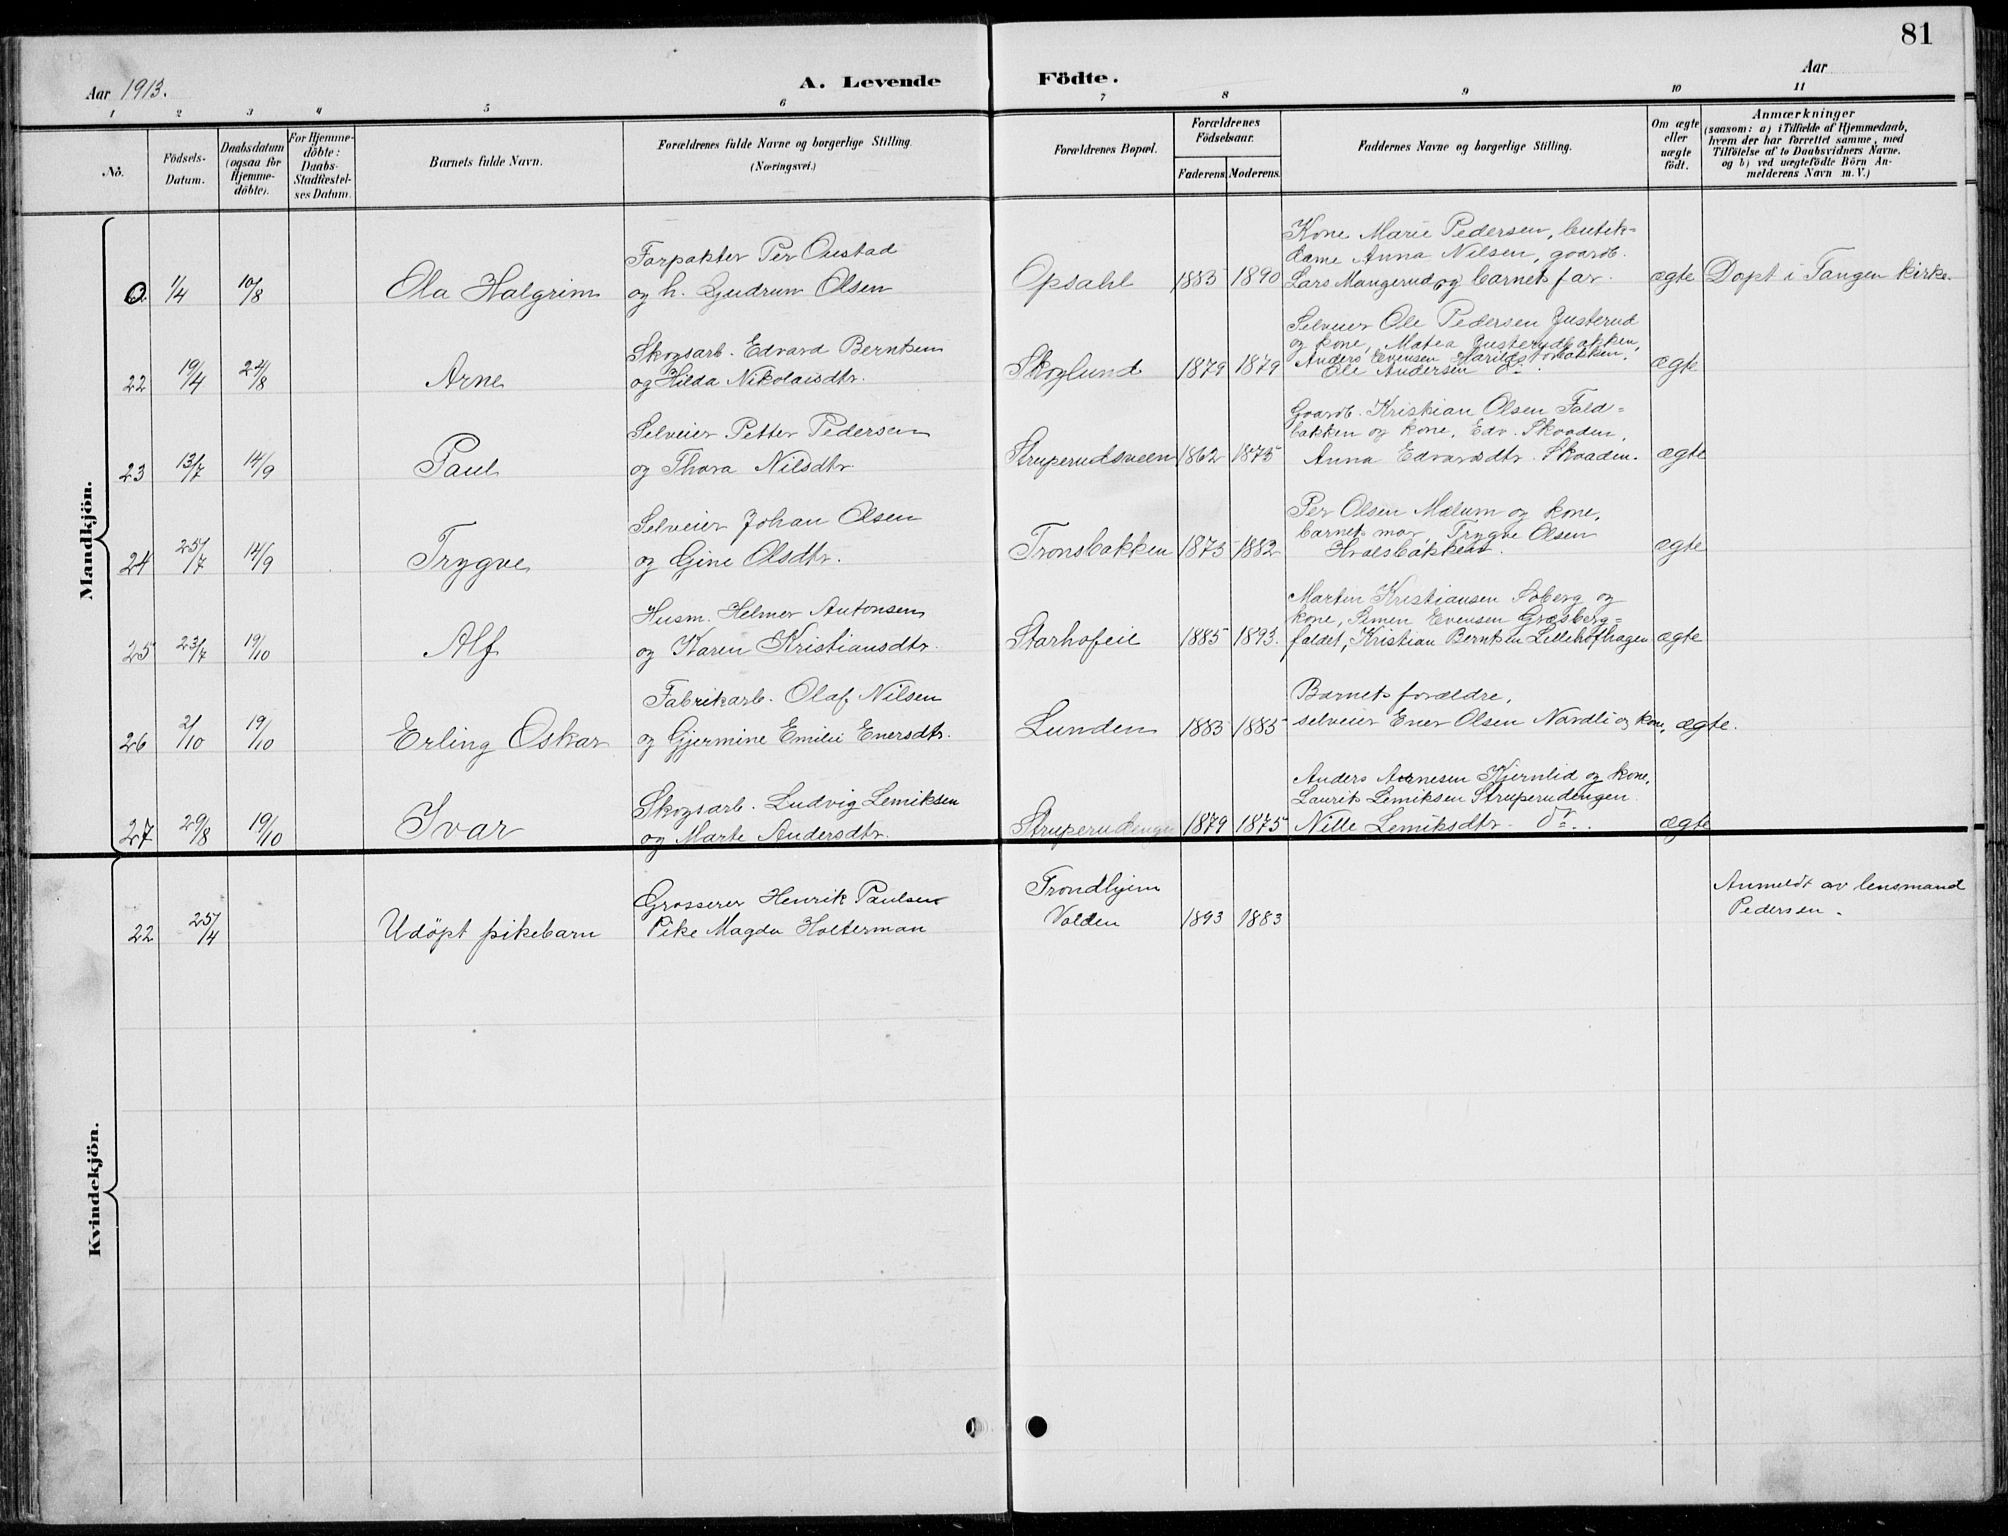 81
Aar 1913.
A. Levende Födte.
Aar
1 2 3 4 5 6 7 8 9 10 11
No.
Födsels-
Datum.
Daabsdatum
(ogsaa for
Hjemme-
döbte).
For Hjemme-
döbte:
Daabs-
Stadfæstel-
ses Datum.
Barnets fulde Navn.
Forældrenes fulde Navne og borgerlige Stilling.
(Næringsvei.)
Forældrenes Bopæl.
Forældrenes
Födselsaar.
Faderens. Moderens.
Faddernes Navne og borgerlige Stilling.
Om ægte
eller
uægte
födt.
Anmærkninger
(saasom: a) i Tilfælde af Hjemmedaab,
hvem der har forrettet samme, med
Tilföielse af to Daabsvidners Navne.
og b) ved uægtefödte Börn An-
melderens Navn m. V.)
Mandkjön.
0. 1/4 10/8
Ola Halgrim
Forpakter Per Onestad
og h. Gudrun Olsen
Opsahl
1883 1890
Kone Marie Pedersen, butik-
dame Anna Nilsen, gaardb.
Lars Mangerud og barnets far.
ægte
Døpt i Tangen kirke.
22 19/4 24/8
Arne
Skogsarb. Edvard Berntsen
og Hilda Nikolaisdtr.
Skoglund
1879 1879
Selveier Ole Pedersen Justerud
og kone, Matea Justerudbakken,
Anders Evensen Harildstobakken.
Ole Andersen do.
ægte
23 13/7 14/9
Paul
Selveier Petter Pedersen
og Thora Nilsdtr.
Struperudsveen
1862 1875
Gaardb. Kristian Olsen Fald-
bakken og kone, Edv. Skaaden,
Anna Edvardsdtr. Skaaden.
ægte
24 25/7 14/9
Trygve
Selveier Johan Olsen
og Gine Olsdtr.
Tronsbakken
1873 1882
Per Olsen Mælum og kone,
barnets mor, Trygve Olsen
Hvalsbakken.
ægte
25 23/7 19/10
Alf
Husm. Helmer Antonsen
og Karen Kristiansdtr.
Starhofeie
1885 1893.
Martin Kristiansen Soberg og
kone, Simen Evensen Græsberg-
faldet, Kristian Berntsen Lillehofhagen
ægte
26 2/10 19/10
Erling Oskar
Fabrikarb. Olaf Nilsen
og Gjermine Emilie Enersdtr.
Lunden
1883 1885
Barnets forældre,
selveier Ener Olsen Nordli og kone,
ægte.
27 29/8 19/10
Ivar
Skogsarb. Ludvig Lemiksen
og Marte Andersdtr.
Struperudengen
1879 1875
Anders Arnesen Kjernlid og kone,
Laurits Lemiksen Struperudengen.
Nille Lemiksdtr. do.
ægte
Kvindekjön.
22 25/4
Udøpt pikebarn
Grosserer Henrik Paulsen
Pike Magda Holterman
Trondhjem
Volden
1893 1883
Anmeldt av lensmand
Pedersen.